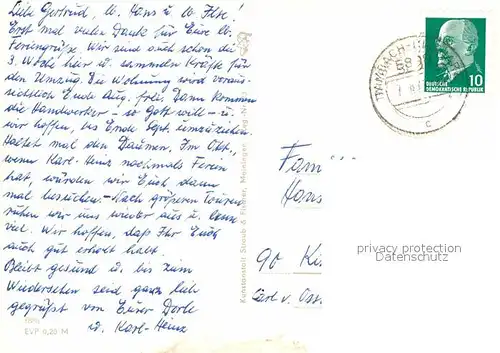 Liebe Gertrud, lb. Hans u. lb. Ilse!
Erst mal vielen Dank für Eure lb.
Feriengrüße. Wir sind auch schon die
3. Woche hier u. sammeln Kräfte für
den Umzug. Die Wohnung wird voraus-
sichtlich Ende Aug. frei. Dann kommen
die Handwerker - so Gott will - u.
wir hoffen, bis Ende Sept. umzuziehen.
Haltet mal den Daumen. Im Okt.,
wenn Karl-Heinz nochmals Ferien
hat, würden wir Euch dann
mal besuchen. Nach größeren Touren
ruhen wir uns wieder aus u. lesen
viel. Wir hoffen, daß Ihr Euch
auch gut erholt habt.
Bleibt gesund u. bis zum
Wiedersehen seid ganz lieb
gegrüßt von Eurer Dorle
u. Karl-Heinz
EVP 0,20 M
Kunstanstalt Straub & Fischer, Meiningen
TAMBACH-
DEUTSCHE
DEMOKRATISCHE REPUBLIK
10
c
Fam
Hans
90 K
Carl v. Oss
privacy protection
Datenschutz